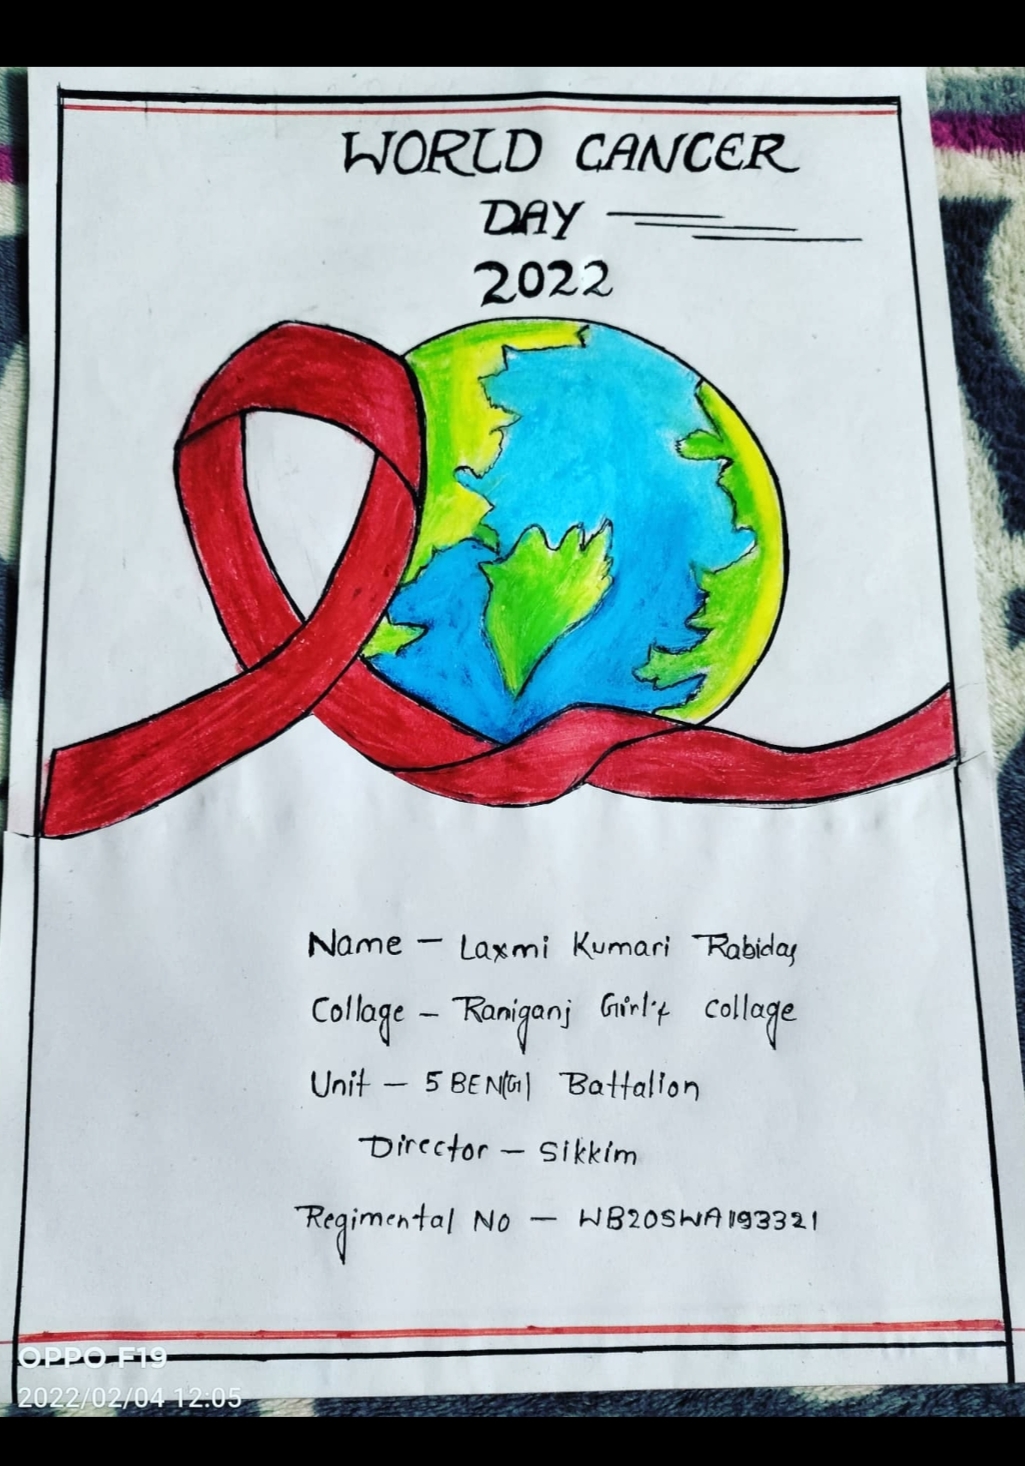 WORLD CANCER
DAY
2022
Name - Laxmi Kumari Rabidas
Collage - Raniganj Girl's collage
Unit - 5 BEN(G) Battalion
Director - Sikkim
Regimental No - WB20SWA193321
OPPO F19
2022/02/04 12:05